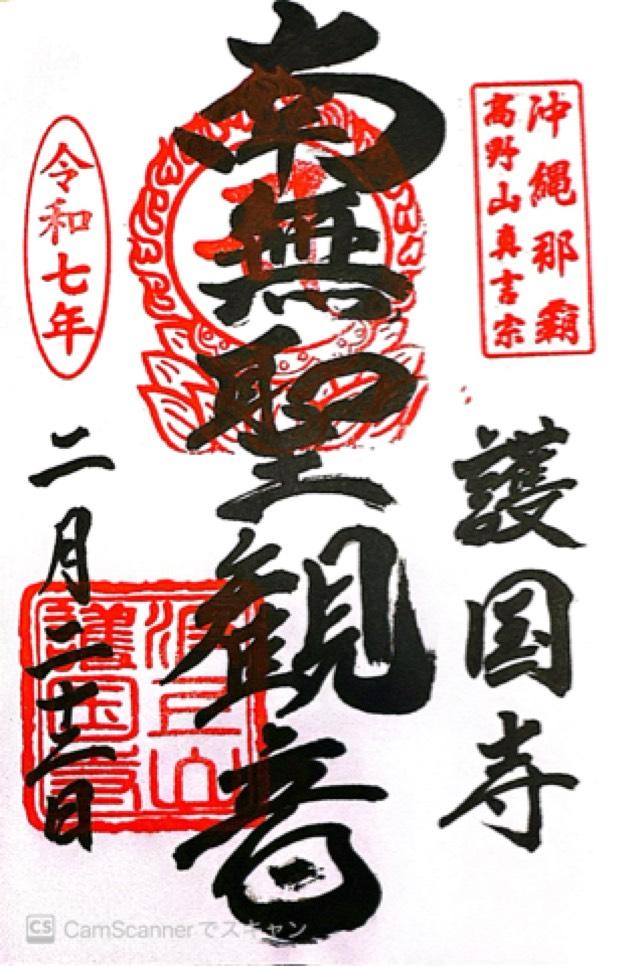 沖縄那覇
高野山真言宗
護国寺
南無聖観音
令和七年
二月二十三日
波上山
護国寺
CS CamScannerでスキャン